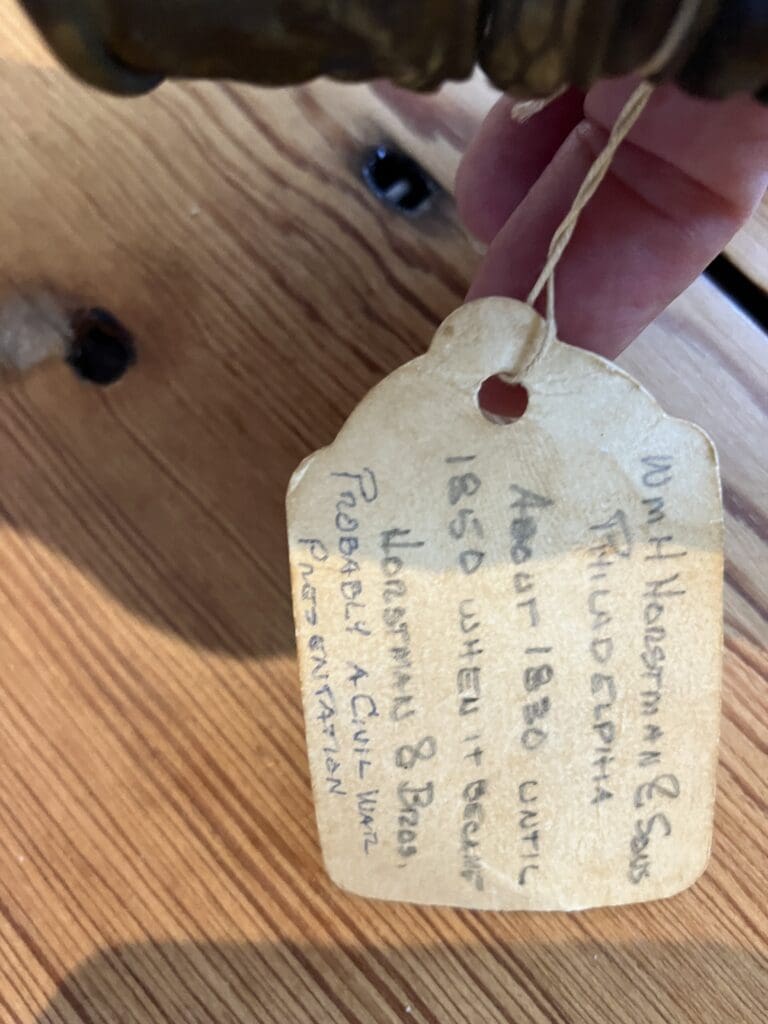 Wm H HORSTMAN & SONS
PHILADELPHIA
ABOUT 1830 UNTIL
1850 WHEN IT BECAME
HORSTMAN & BROS.
PROBABLY A CIVIL WAR
PRESENTATION